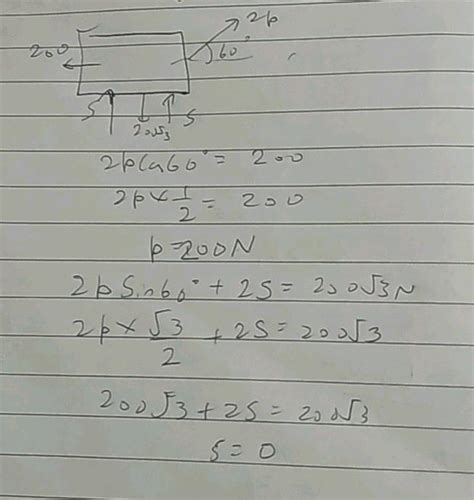 2p
200
60°
S
20√3
S
2pCos60° = 200
2p × 1/2 = 200
p = 200N
2p Sin60° + 2S = 200√3N
2p × √3/2 + 2S = 200√3
200√3 + 2S = 200√3
S = 0